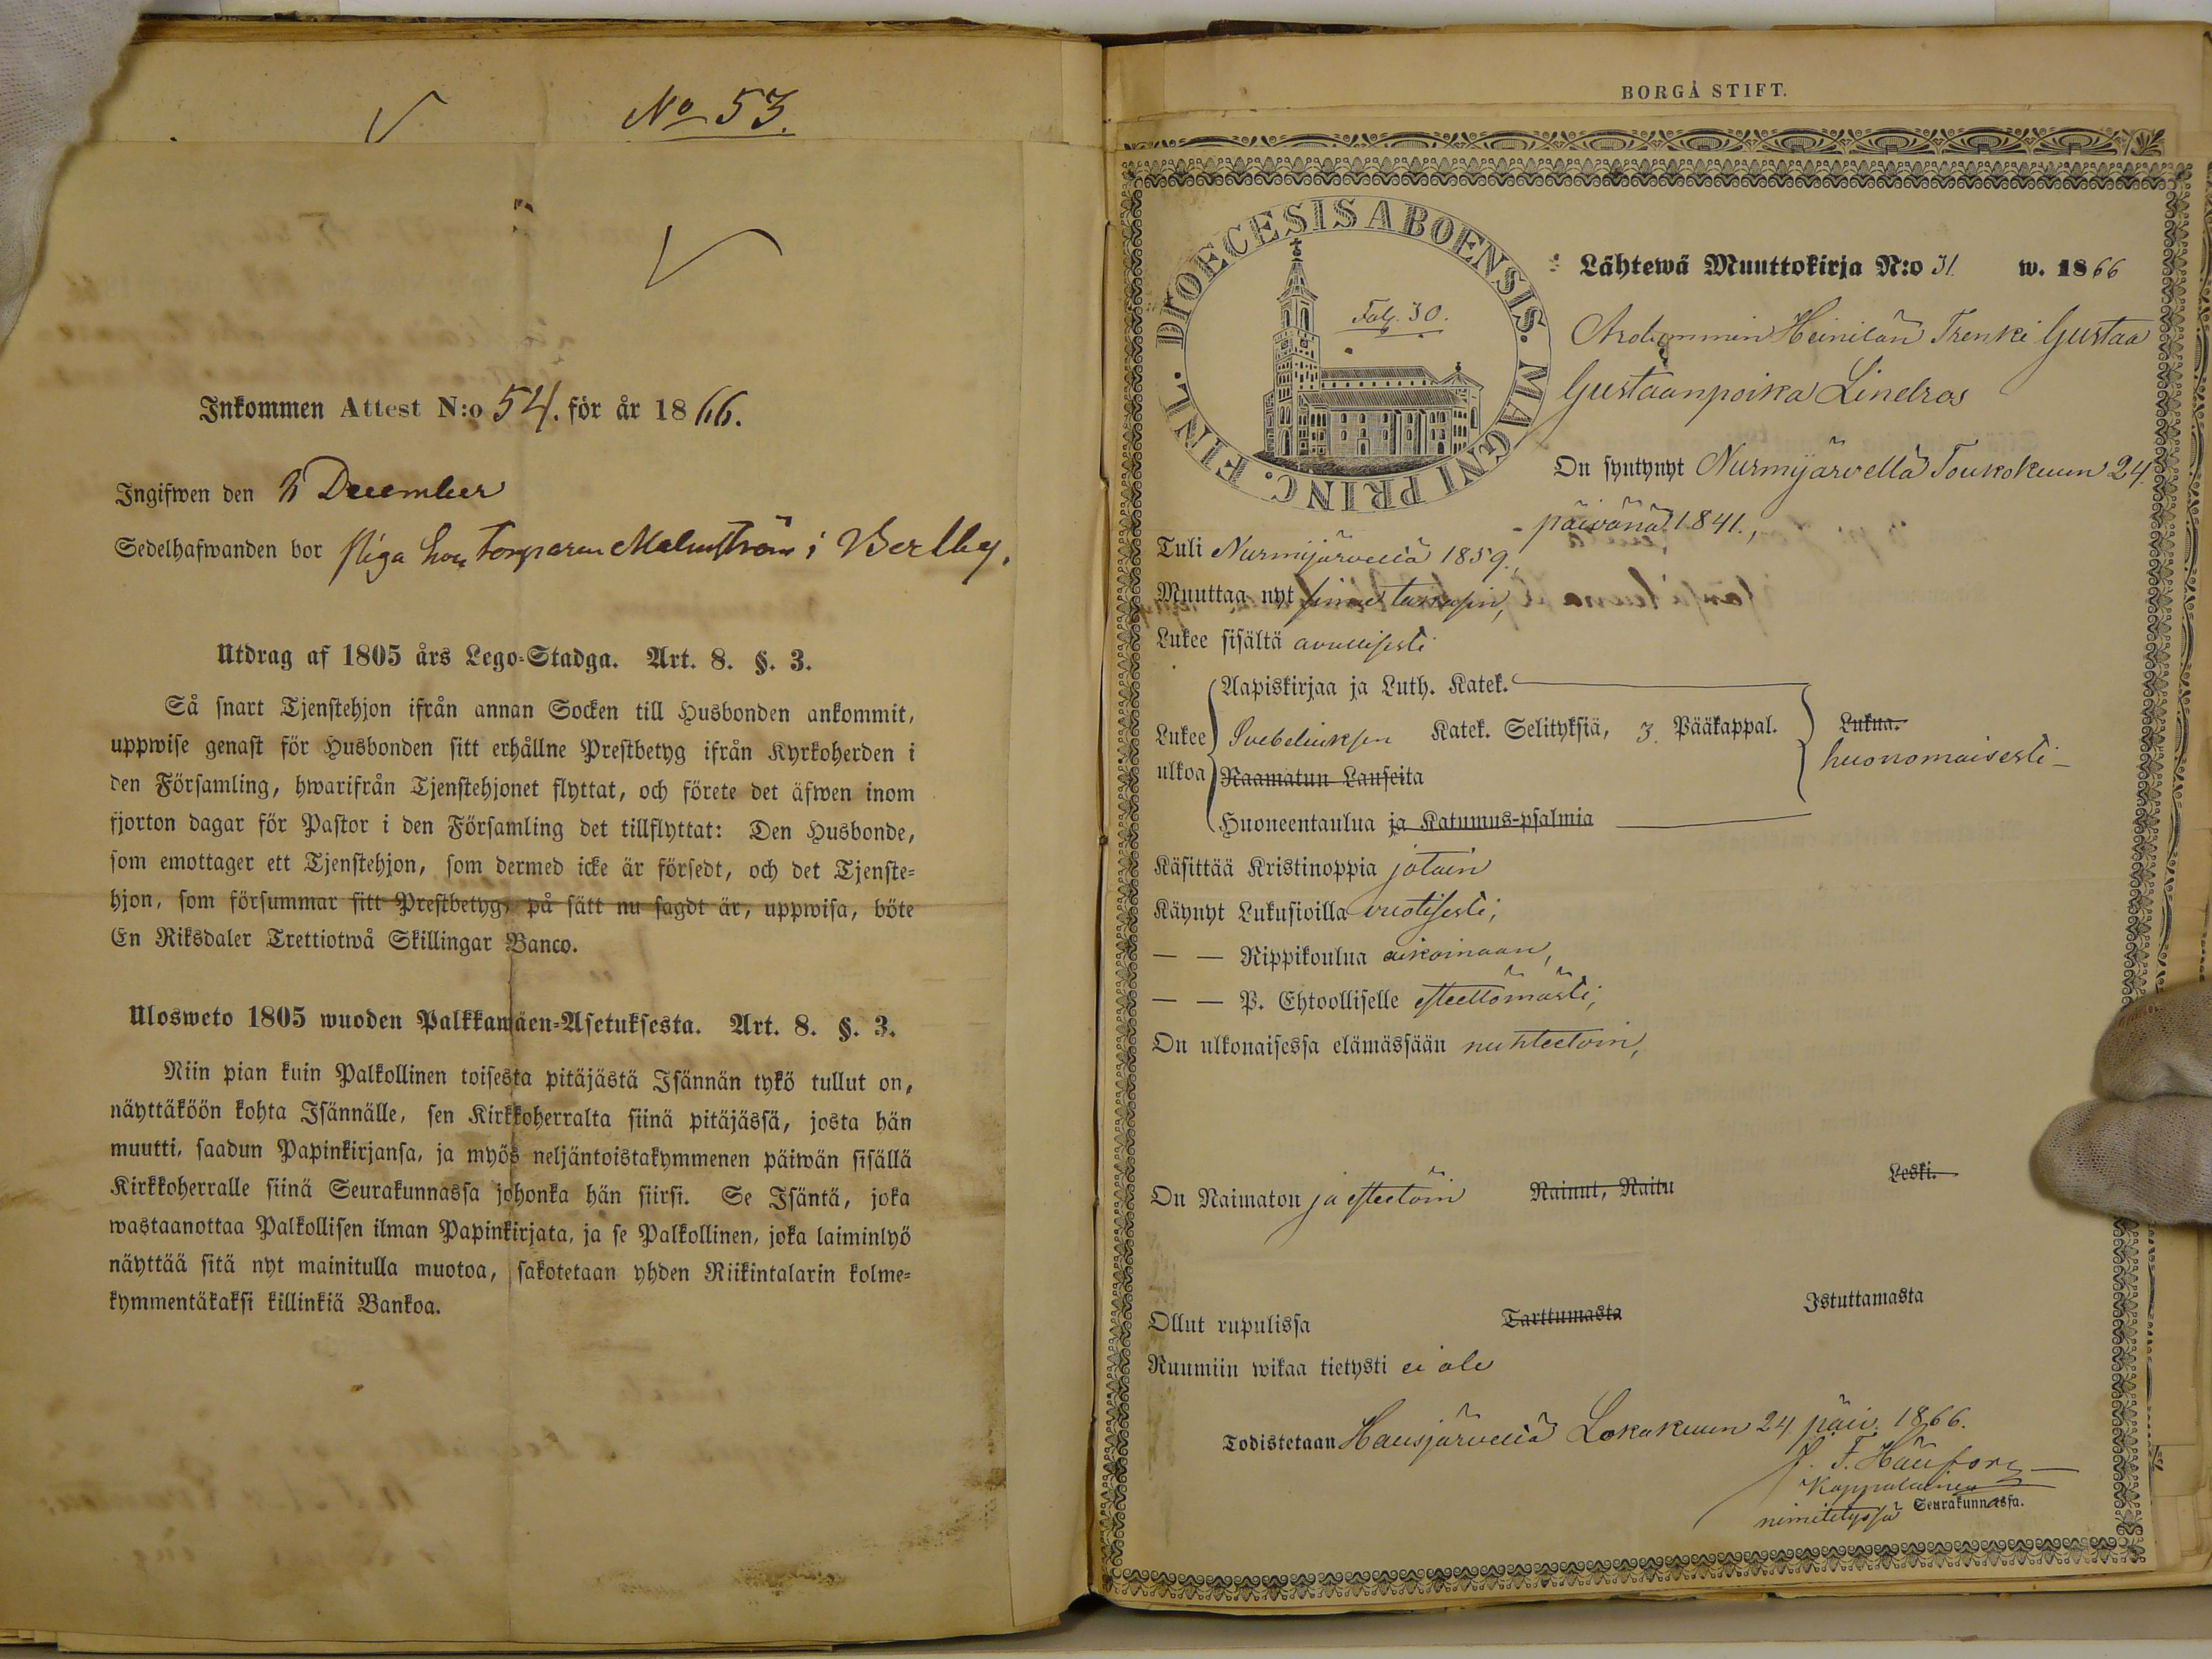 No 53.
Inkommen Attest N:o 54. för år 1866.
Ingifwen den 2 December
Sedelhafwanden bor piga hos Torparen Malmström i Bertby.
Utdrag af 1805 års Lego-Stadga. Art. 8. §. 3.
Så snart Tjenstehjon ifrån annan Socken till Husbonden ankommit,
uppwise genast för Husbonden sitt erhållne Prestbetyg ifrån Kyrkoherden i
den Församling, hwarifrån Tjenstehjonet flyttat, och förete det äfwen inom
fjorton dagar för Pastor i den Församling det tillflyttat: Den Husbonde,
som emottager ett Tjenstehjon, som dermed icke är försedt, och det Tjenste-
hjon, som försummar sitt Prestbetyg, på sätt nu sagdt är, uppwisa, böte
En Riksdaler Trettiotwå Skillingar Banco.
Ulosweto 1805 wuoden Palkkamäen-Asetuksesta. Art. 8. §. 3.
Niin pian kuin Palkollinen toisesta pitäjästä Isännän tykö tullut on,
näyttäköön kohta Isännälle, sen Kirkkoherralta siinä pitäjässä, josta hän
muutti, saadun Papinkirjansa, ja myös neljäntoistakymmenen päiwän sisällä
Kirkkoherralle siinä Seurakunnassa johonka hän siirsi. Se Isäntä, joka
wastaanottaa Palkollisen ilman Papinkirjata, ja se Palkollinen, joka laiminlyö
näyttää sitä nyt mainitulla muotoa, sakotetaan yhden Riikintalarin kolme-
kymmentäkaksi killinkiä Bankoa.
BORGÅ STIFT.
DIOECESIS ABOENSIS. MAGNI PRINC. FINL.
Fol. 30.
Lähtewä Muuttokirja N:o 31. w. 1866
Heinilän Trenki Gustaa
Gustaanpoika Lindros
On syntynyt Nurmijärvellä Toukokuun 24.
päivänä 1841.,
Tuli Nurmijärveltä 1859.,
Muuttaa nyt
Lukee sisältä avullisesti
Aapiskirjaa ja Luth. Katek.
Lukee Svebeliuksen Katek. Selityksiä, 3. Pääkappal. Lukua.
huonomaisesti
ulkoa Raamatun Lauseita
Huoneentaulua ja Katumus-psalmia
Käsittää Kristinoppia jotain
Käynyt Lukusioilla vuotisesti,
— — Rippikoulua aikoinaan,
— — P. Ehtoolliselle esteettömästi,
On ulkonaisessa elämässään nuhteetoin,
On Naimaton ja esteetöin Nainut, Naitu Leski.
Ollut rupulissa Tarttumasta Istuttamasta
Ruumiin wikaa tietysti ei ole
Todistetaan Hausjärvellä Lokakuun 24 päiv. 1866.
Kappalainen
nimitetyssä Seurakunnassa.